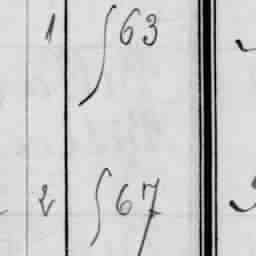 1 ∫63
2 ∫67